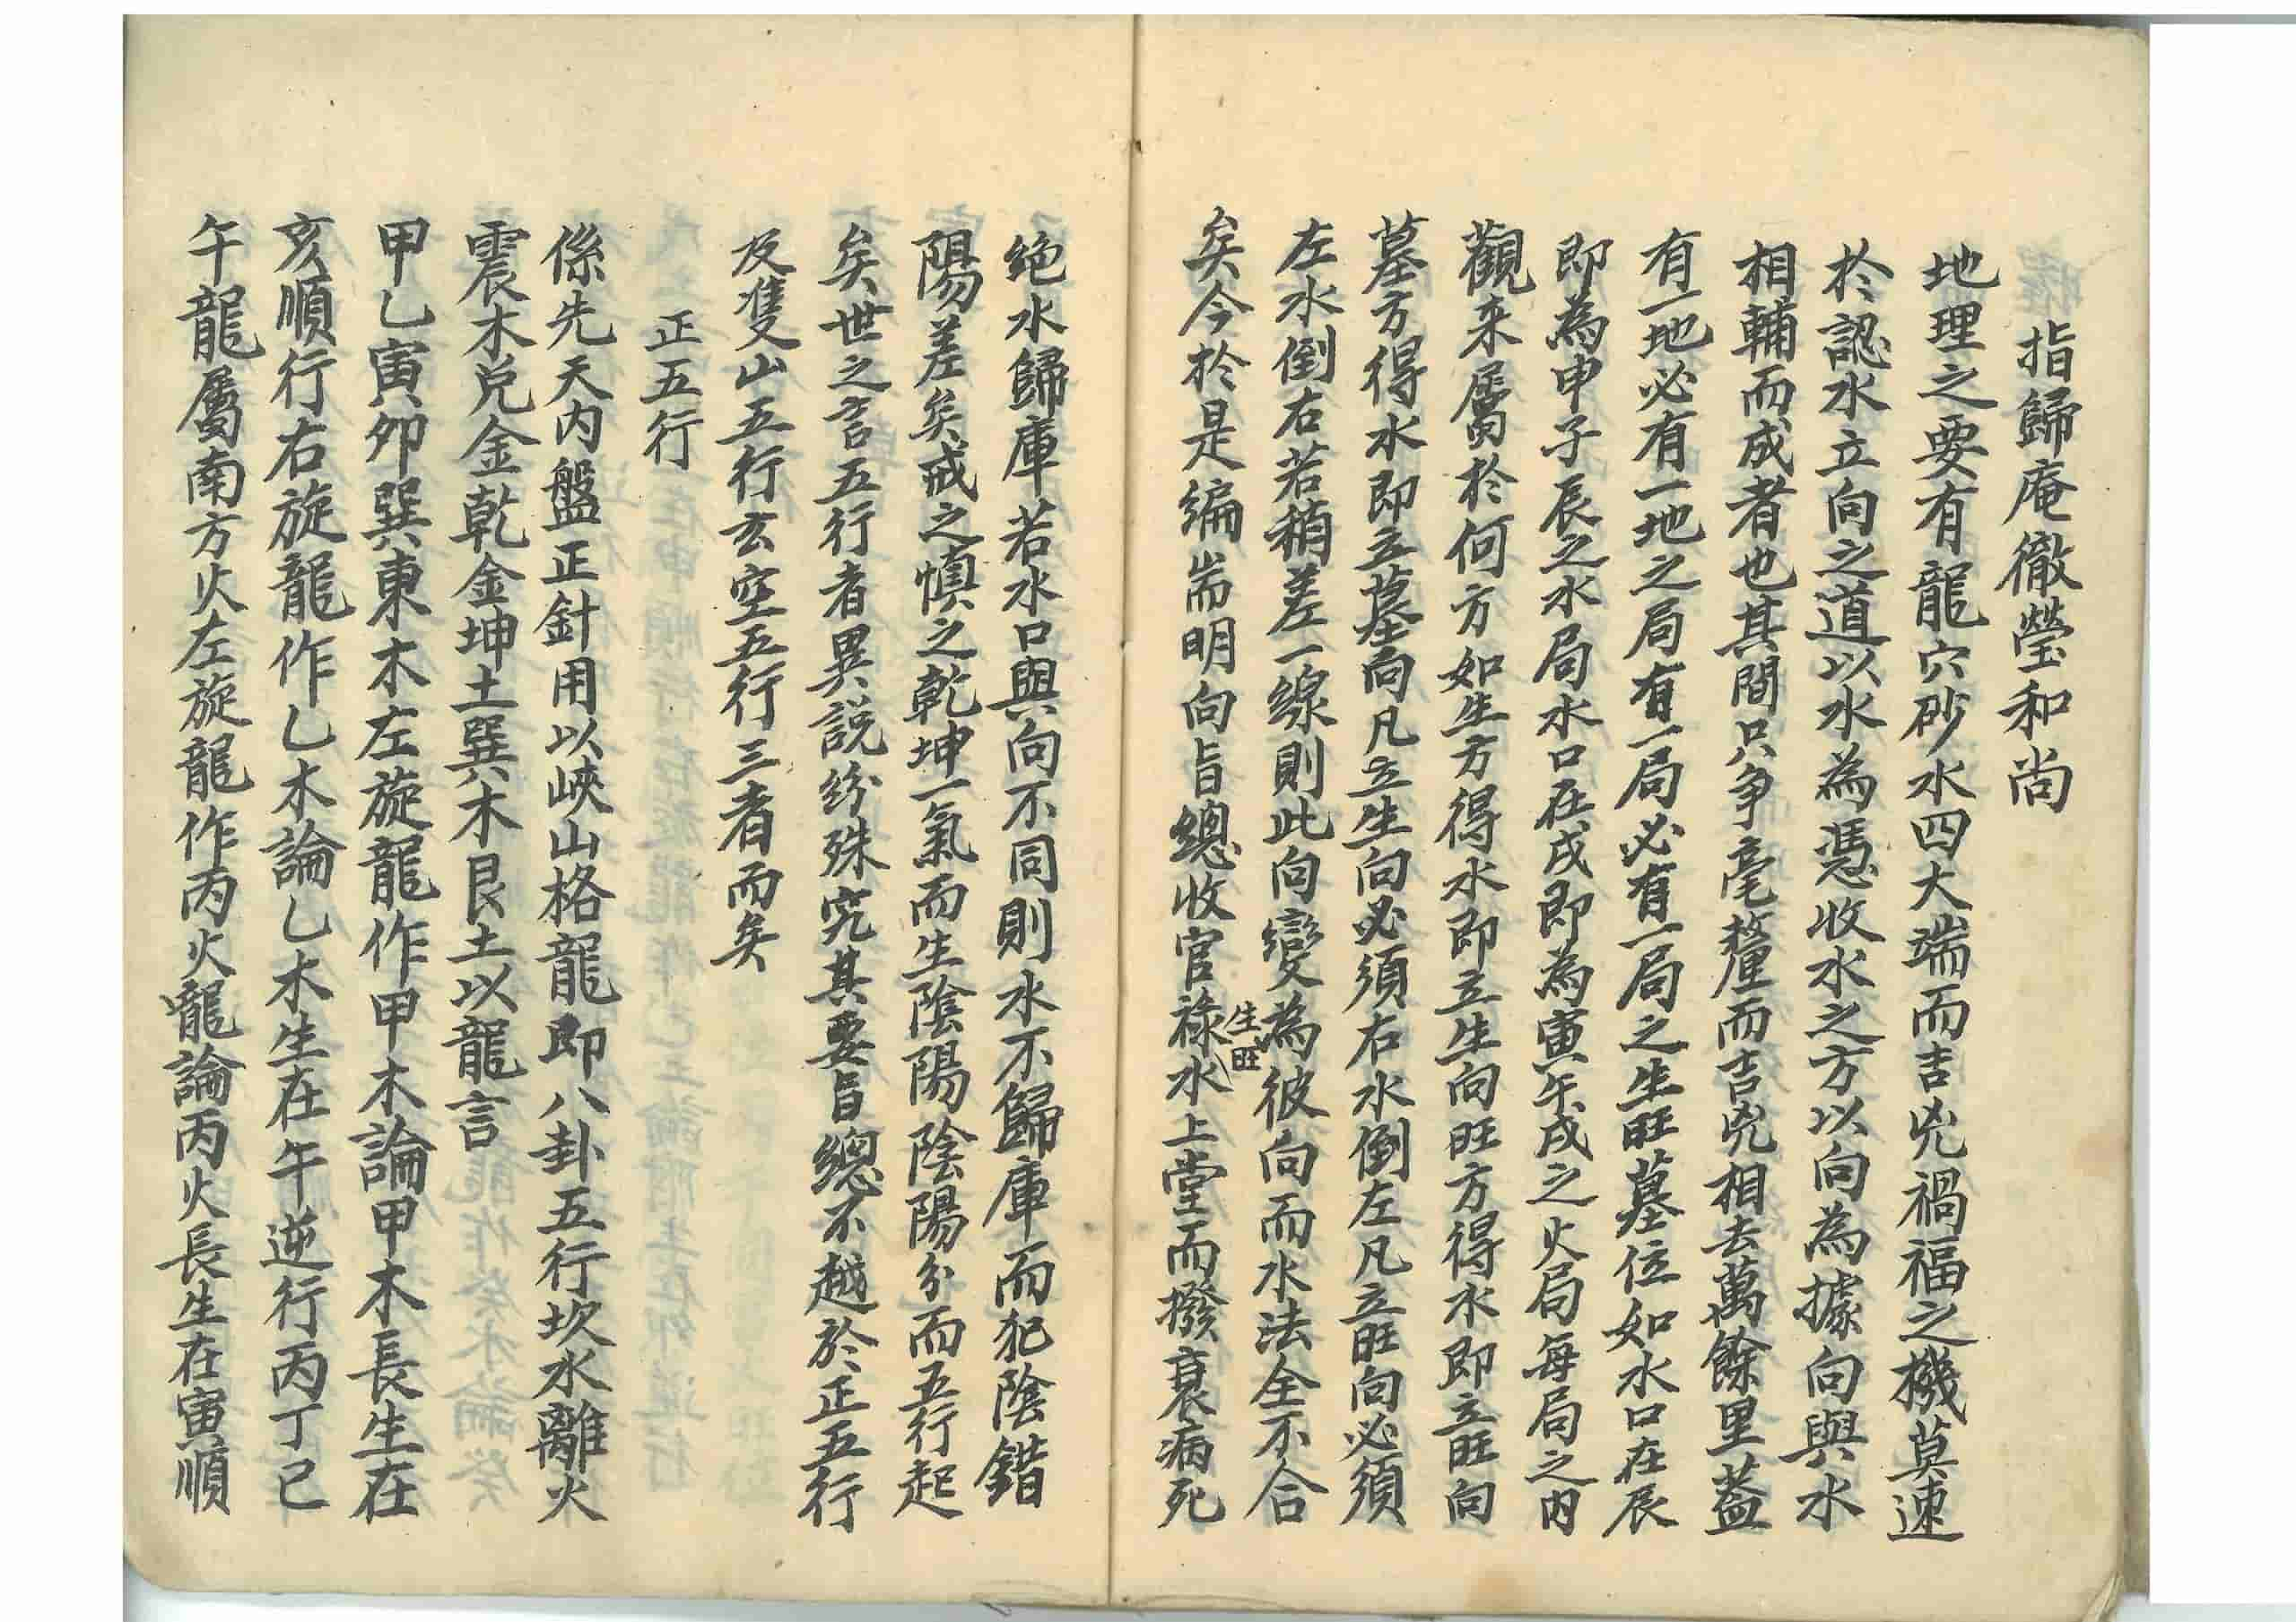 指歸庵徹瑩和尚
地理之要有龍穴砂水四大端而吉兇禍福之機莫速
於認水立向之道以水為憑收水之方以向為據向與水
相輔而成者也其間只争毫釐而吉兇相去萬餘里蓋
有一地必有一地之局有一局必有一局之生旺墓位如水口在辰
即為申子辰之水局水口在戌即為寅午戌之火局每局之内
觀来屬於何方如生方得水即立生向旺方得水即立旺向
墓方得水即立墓向凡立生向必須右水倒左凡立旺向必須
左水倒右若稍差一線則此向變為彼向而水法全不合
矣今於是編耑明向旨總收官祿生旺水上堂而撥衰病死
絶水歸庫若水口與向不同則水不歸庫而犯陰錯
陽差矣戒之慎之乾坤一氣而生陰陽陰陽分而五行起
矣世之言五行者異説紛殊究其要旨總不越於正五行
及隻山五行玄空五行三者而矣
正五行
係先天内盤正針用以峽山格龍即八卦五行坎水離火
震木兑金乾金坤土巽木艮土以龍言
甲乙寅卯巽東木左旋龍作甲木論甲木長生在
亥順行右旋龍作乙木論乙木生在午逆行丙丁巳
午龍屬南方火左旋龍作丙火龍論丙火長生在寅順